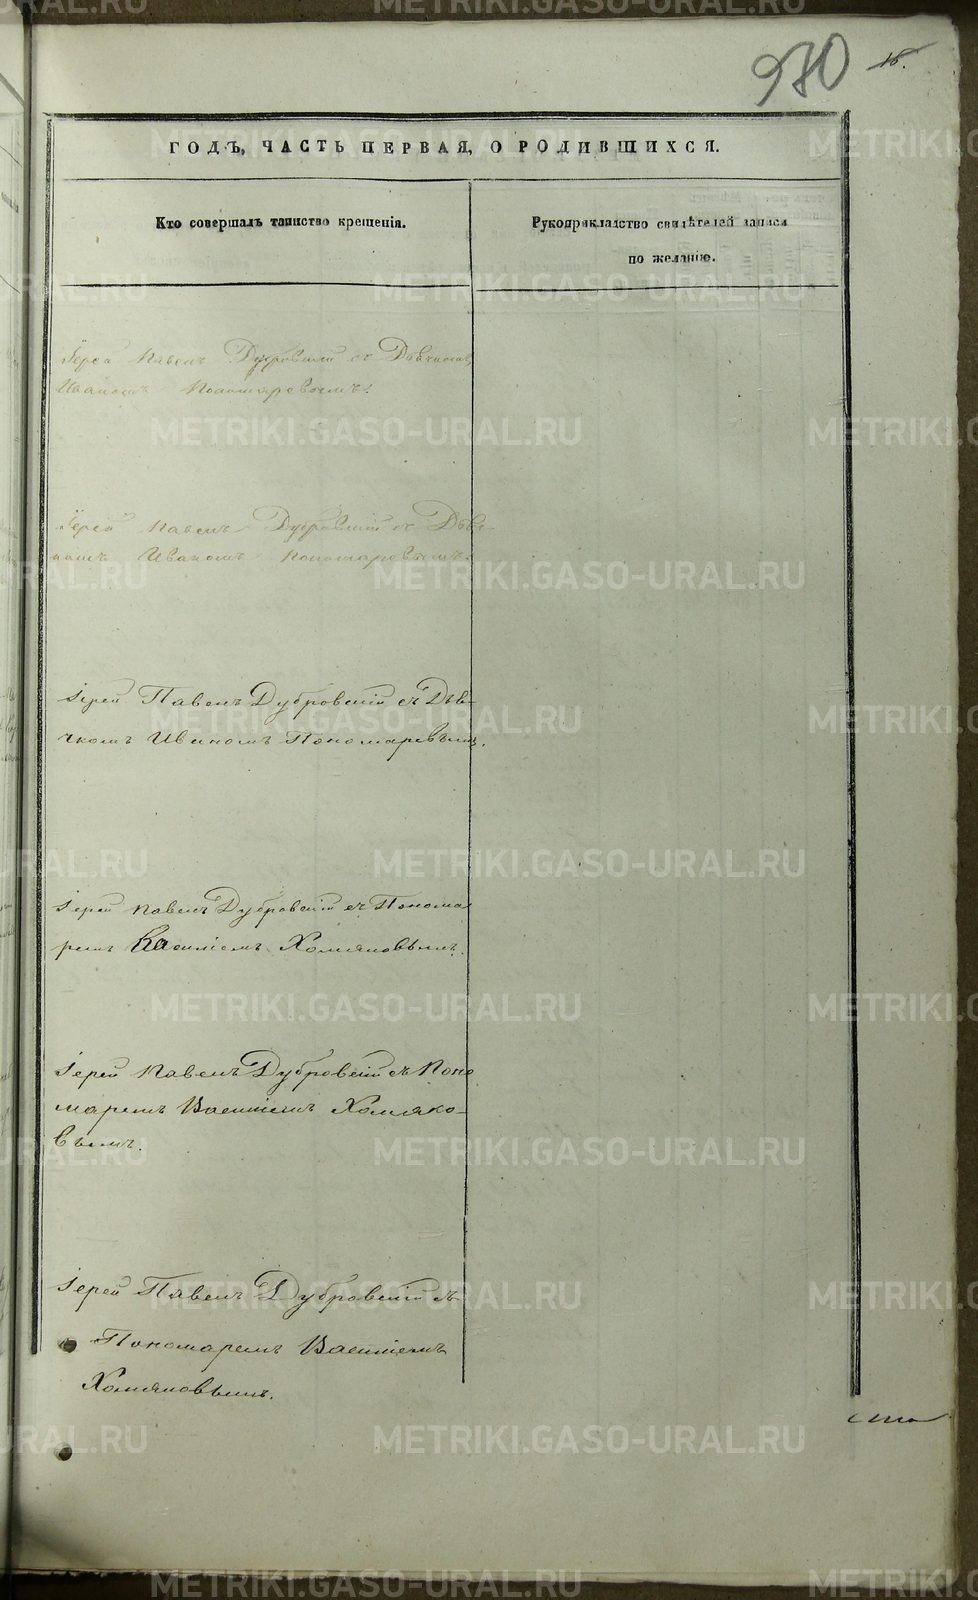 970 18.
ГОДЪ, ЧАСТЬ ПЕРВАЯ, О РОДИВШИХСЯ.
Кто совершалъ таинство крещенія.
Рукоприкладство свидѣтелей записи
по желанію.
Іерей Павелъ Дубровскій съ Дьячкомъ
Иваномъ Пономаревымъ.
Іерей Павелъ Дубровскій съ Дьяч-
комъ Иваномъ Пономаревымъ.
Іерей Павелъ Дубровскій съ Дья-
чкомъ Иваномъ Пономаревымъ.
Іерей Павелъ Дубровскій съ Понома
ремъ Василіемъ Хомяковымъ.
Іерей Павелъ Дубровскій съ Поно
маремъ Василіемъ Хомяко-
вымъ.
Іерей Павелъ Дубровскій съ
Пономаремъ Василіемъ
Хомяковымъ.
METRIKI.GASO-URAL.RU